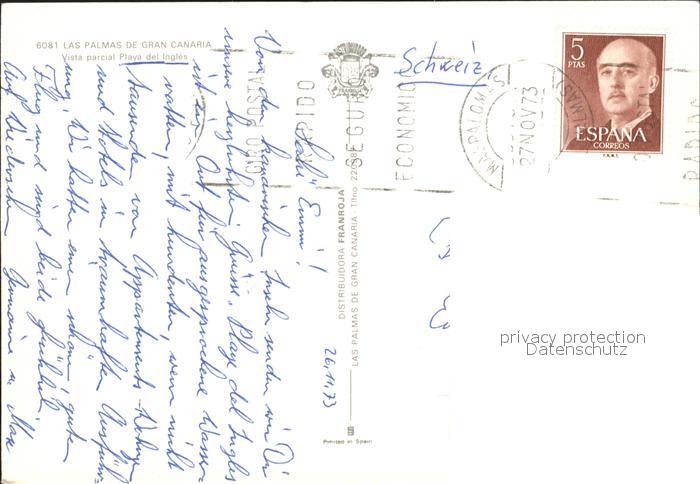 6081 LAS PALMAS DE GRAN CANARIA
Vista parcial Playa del Inglés
Schweiz
5
PTAS
ESPAÑA
CORREOS
F.N.M.T.
MASPALOMAS
27 NOV 73
GIRO POSTAL
RAPIDO
SEGURO
ECONOMICO
26.11.73
Salü Emmi!
Von den kanarischen Inseln senden wir Dir
unsere herzlichsten Grüsse. Playa del Ingles
ist ein Ort für ausgesprochene Wasser-
ratten, mit hunderten, wenn nicht
tausenden von Appartements-Wohnungen
und Hotels in traumhafter Ausführ-
ung. Wir hatten einen schönen, guten
Flug und sind beide glücklich.
Auf Wiedersehen Germaine u. Max
DISTRIBUIDORA FRANROJA
LAS PALMAS DE GRAN CANARIA - Tlfno.
Printed in Spain
privacy protection
Datenschutz